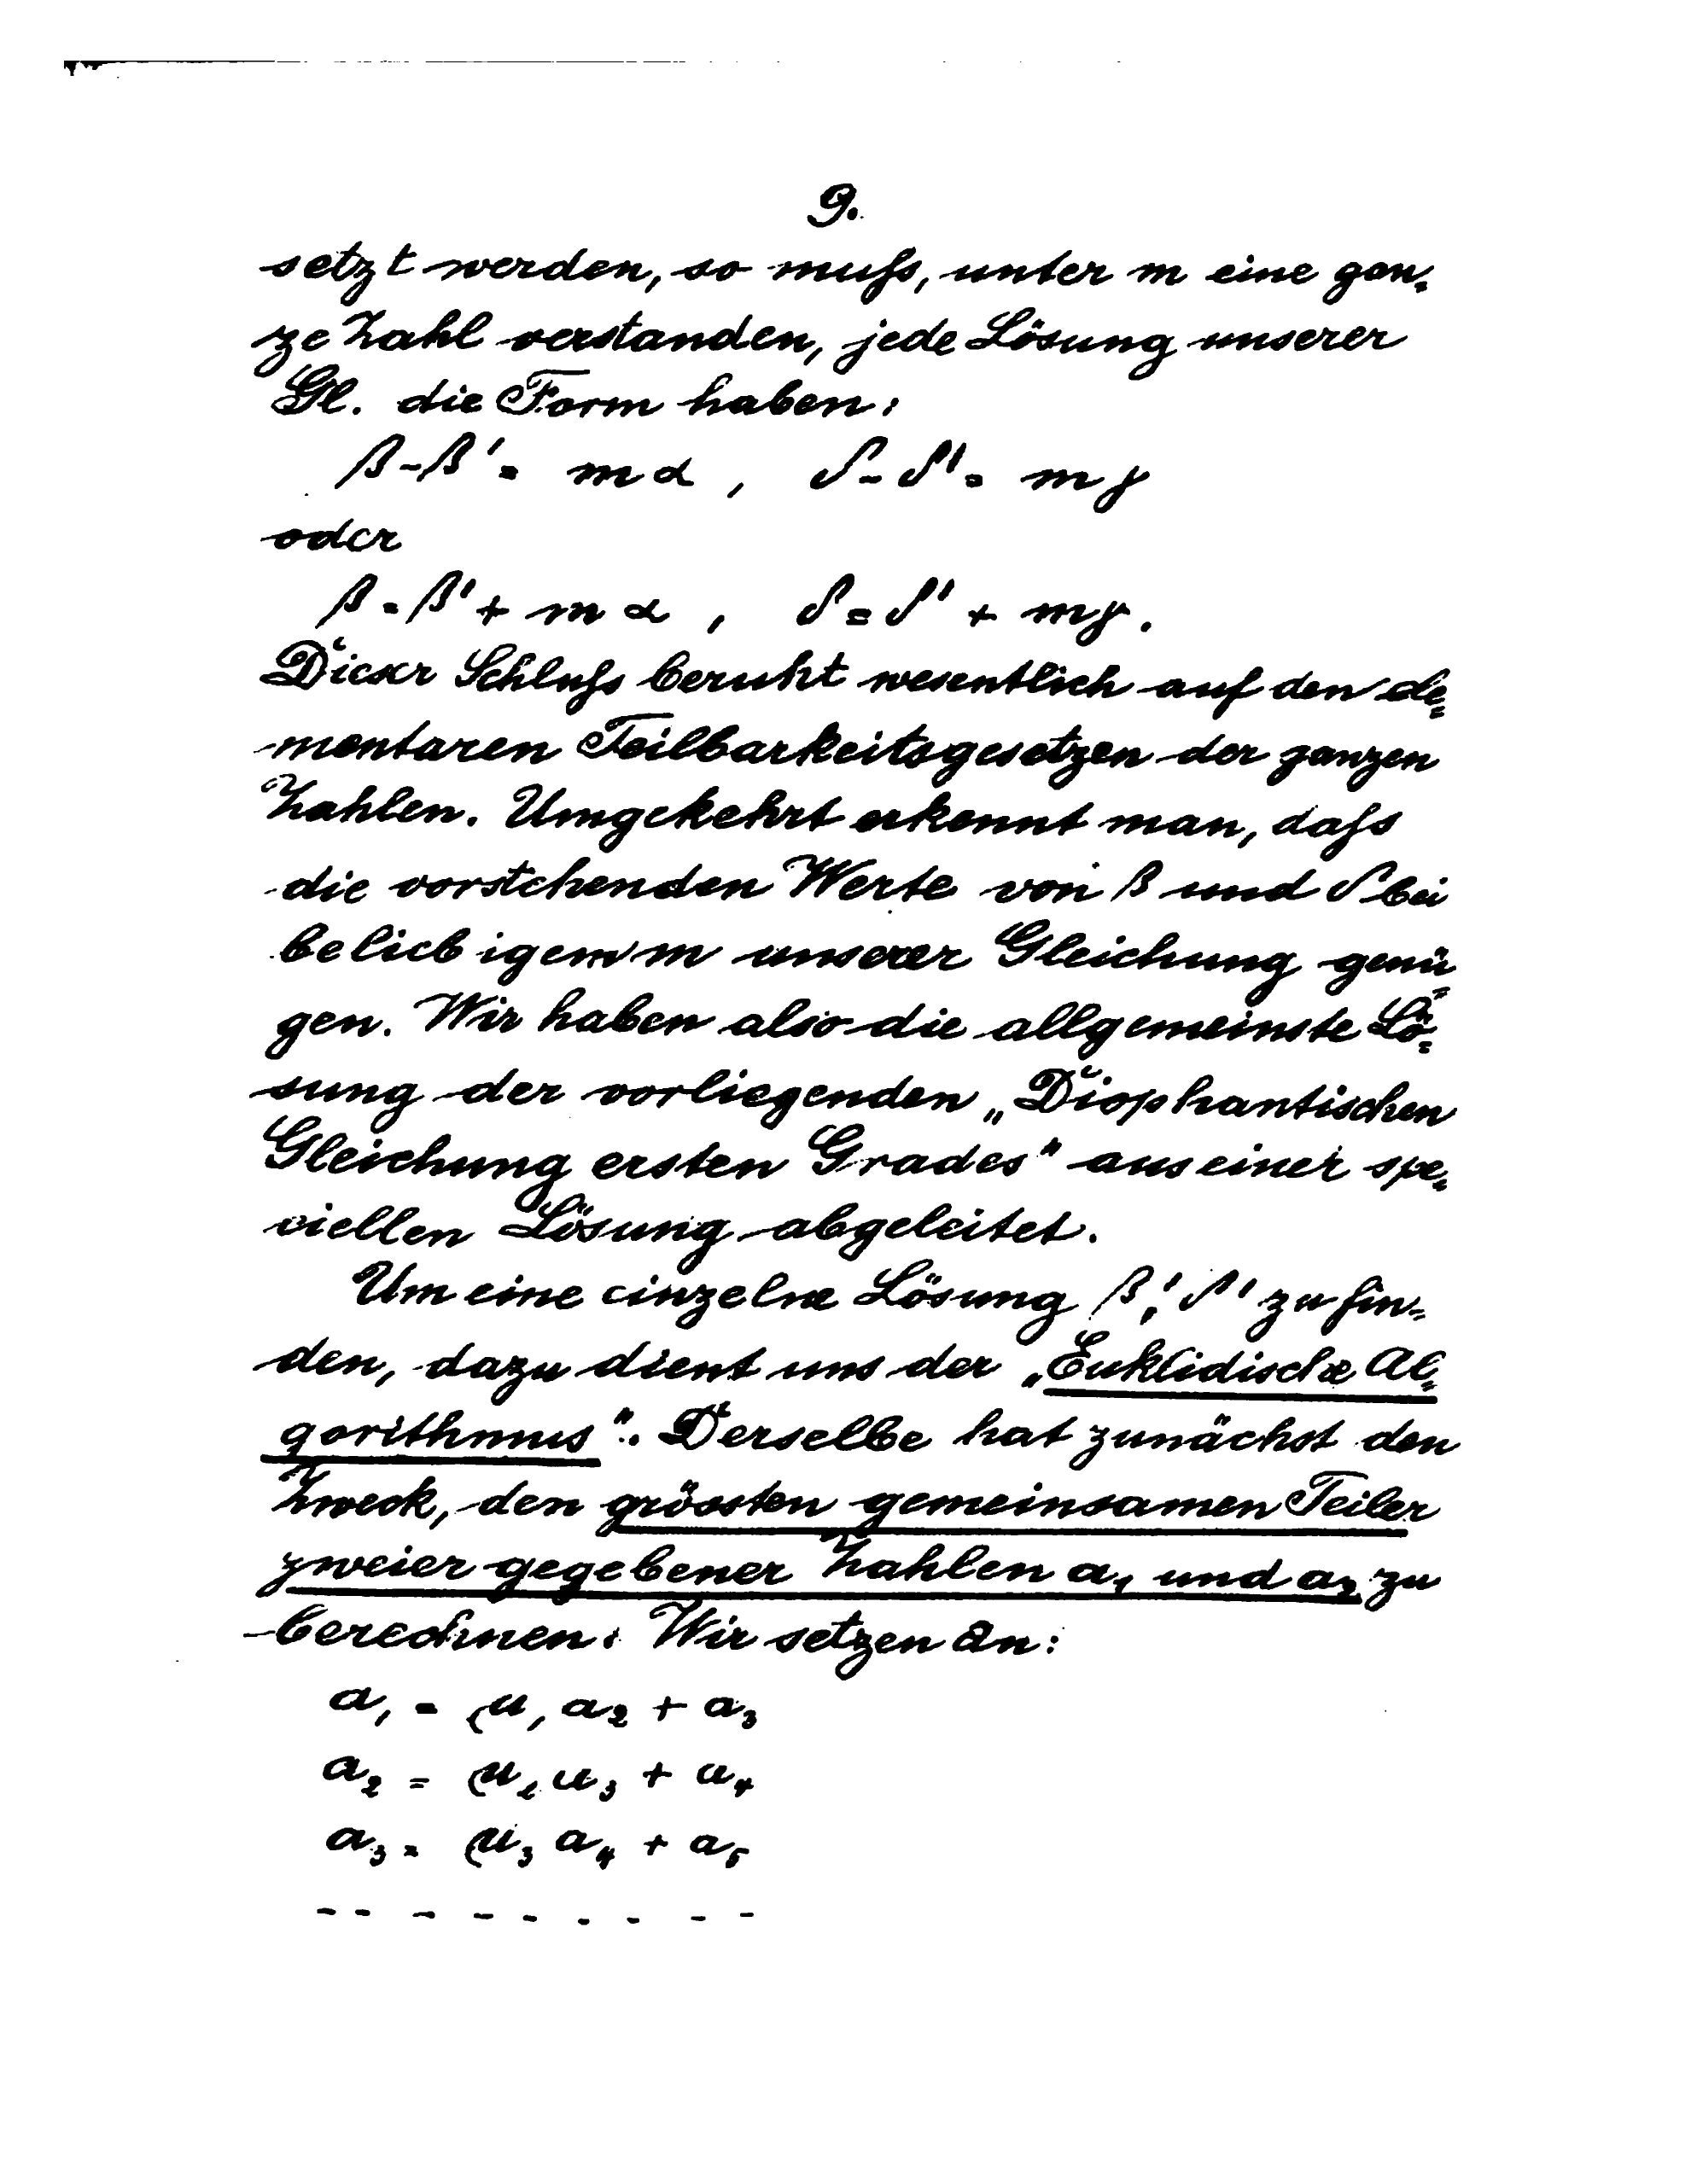 9.
setzt werden, so muſs, unter m eine gan=
ze Zahl verstanden, jede Lösung unserer
Gl. die Form haben:
β - β' = mα , δ - δ' = mγ
oder
β = β' + mα , δ = δ' + mγ.
Dieser Schluſs beruht wesentlich auf den ele=
mentaren Teilbarkeitsgesetzen der ganzen
Zahlen. Umgekehrt erkennt man, daſs
die vorstehenden Werte von β und δ bei
beliebigem m unserer Gleichung genü=
gen. Wir haben also die allgemeinste Lö=
sung der vorliegenden „Diophantischen
Gleichung ersten Grades" aus einer spe=
ziellen Lösung abgeleitet.
Um eine einzelne Lösung β', δ' zu fin=
den, dazu dient uns der „Euklidische Al=
gorithmus". Derselbe hat zunächst den
Zweck, den grössten gemeinsamen Teiler
zweier gegebener Zahlen a₁ und a₂ zu
berechnen: Wir setzen an:
a₁ = μ₁ a₂ + a₃
a₂ = μ₂ a₃ + a₄
a₃ = μ₃ a₄ + a₅
- - - - - - - - -